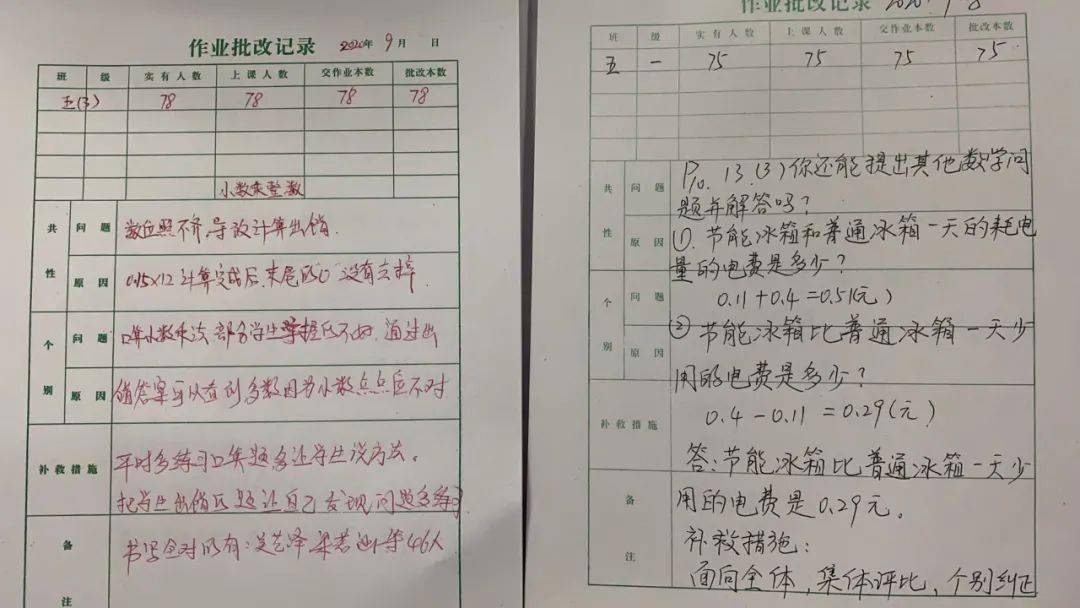 作业批改记录 2020年9月 日
班 级 实有人数 上课人数 交作业本数 批改本数
五(3) 78 78 78 78
小数乘整数
共性 问题 数位照不齐,导致计算出错.
原因 0.15×12计算完成后,末尾的0没有去掉
个别 问题 口算小数乘法,部分学生掌握的不好.通过出
原因 错答案可以看到多数因为小数点点的不对
补救措施 平时多练习口算题多让学生说方法。
把学生出错的题让自己发现问题多练习
备注 书写全对的有:
等46人
作业批改记录 2020
班 级 实有人数 上课人数 交作业本数 批改本数
五 一 75 75 75 75
共性 问题 原因
个别 问题 原因
补救措施
备注
P10. 13.(3)你还能提出其他数学问
题并解答吗?
①.节能冰箱和普通冰箱一天的耗电
量的电费是多少?
0.11+0.4=0.51(元)
②节能冰箱比普通冰箱一天少
用的电费是多少?
0.4-0.11=0.29(元)
答:节能冰箱比普通冰箱一天少
用的电费是0.29元。
补救措施:
面向全体,集体评比,个别纠正